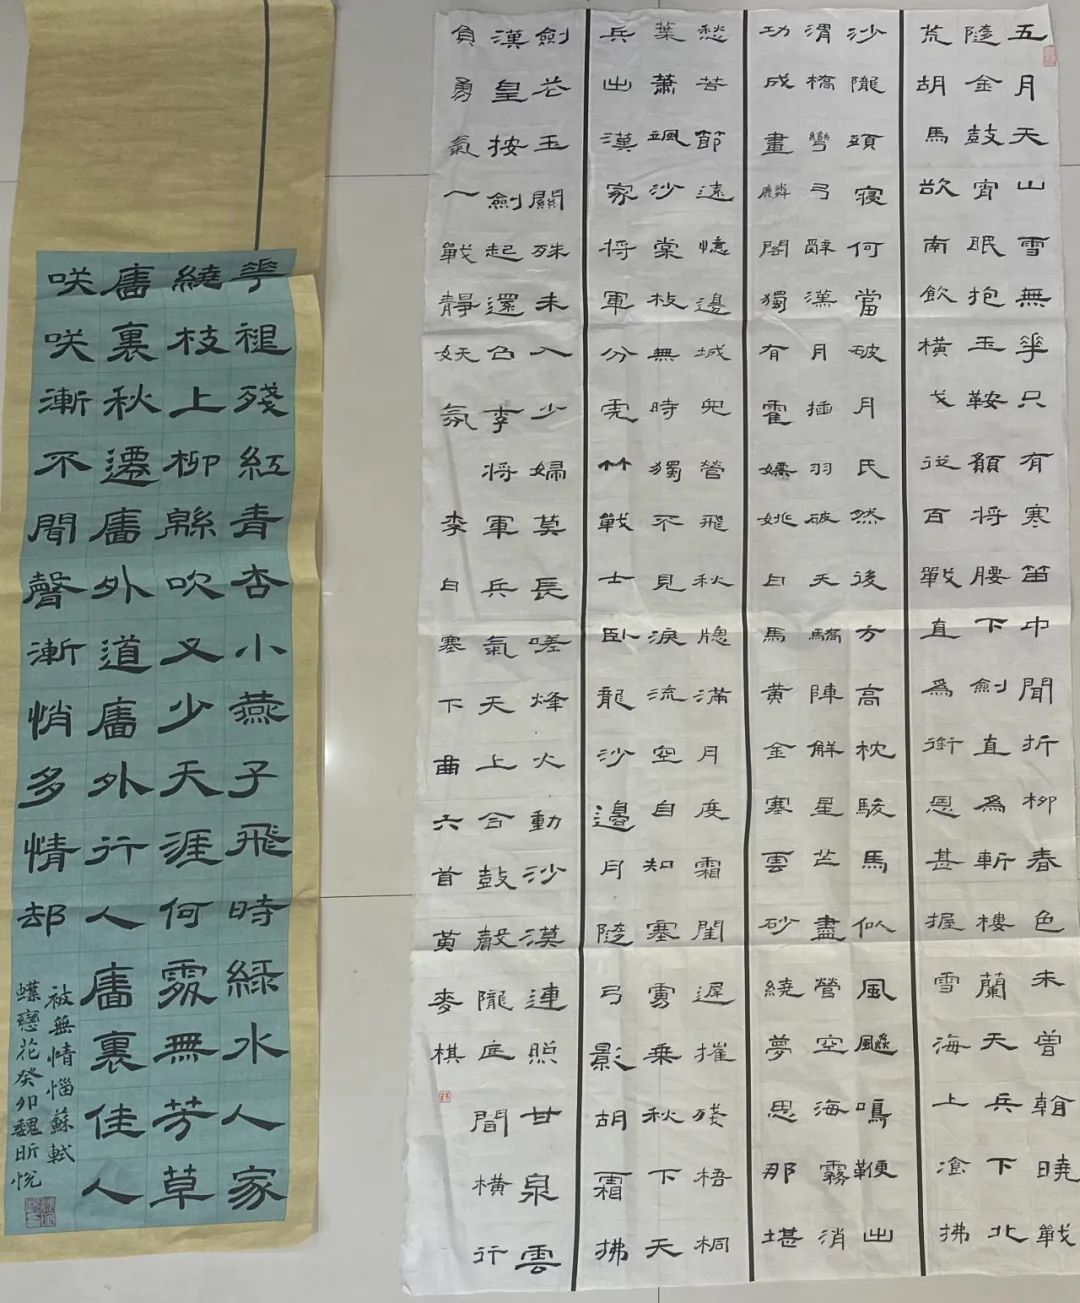 華褪殘紅青杏小燕子飛時綠水人家
繞枝上柳緜吹又少天涯何處無芳草
廧裏秋遷廧外道廧外行人廧裏佳人
咲咲漸不聞聲漸悄多情却
被無情惱蘇軾
蝶戀花癸卯魏昕悅
五月天山雪無華只有寒笛中聞折柳春色未曾翰曉戰
隨金鼓宵眠抱玉鞍願将腰下劍直為斬樓蘭天兵下北
荒胡馬欲南飲橫戈從百戰直為銜恩甚握雪海上飡拂
沙隴頭寢何當破月氏然後方高枕駿馬似風飈鳴鞭出
渭橋彎弓辭漢月插羽破天驕陣解星芒盡營空海霧消
功成畫麟閣獨有霍嫖姚白馬黃金塞雲砂繞夢思那堪
愁苦節遠憶邊城兒營飛秋牕滿月度霜閨遲摧殘梧桐
葉蕭颯沙棠枝無時獨不見淚流空自知塞虜乘秋下天
兵出漢家将軍分虎竹戰士臥龍沙邊月隨弓影胡霜拂
劍花玉關殊未入少婦莫長嗟烽火動沙漠連照甘泉雲
漢皇按劍起還召李将軍兵氣天上合鼓聲隴底聞橫行
負勇氣一戰靜妖氛 李白塞下曲六首黃麥棋